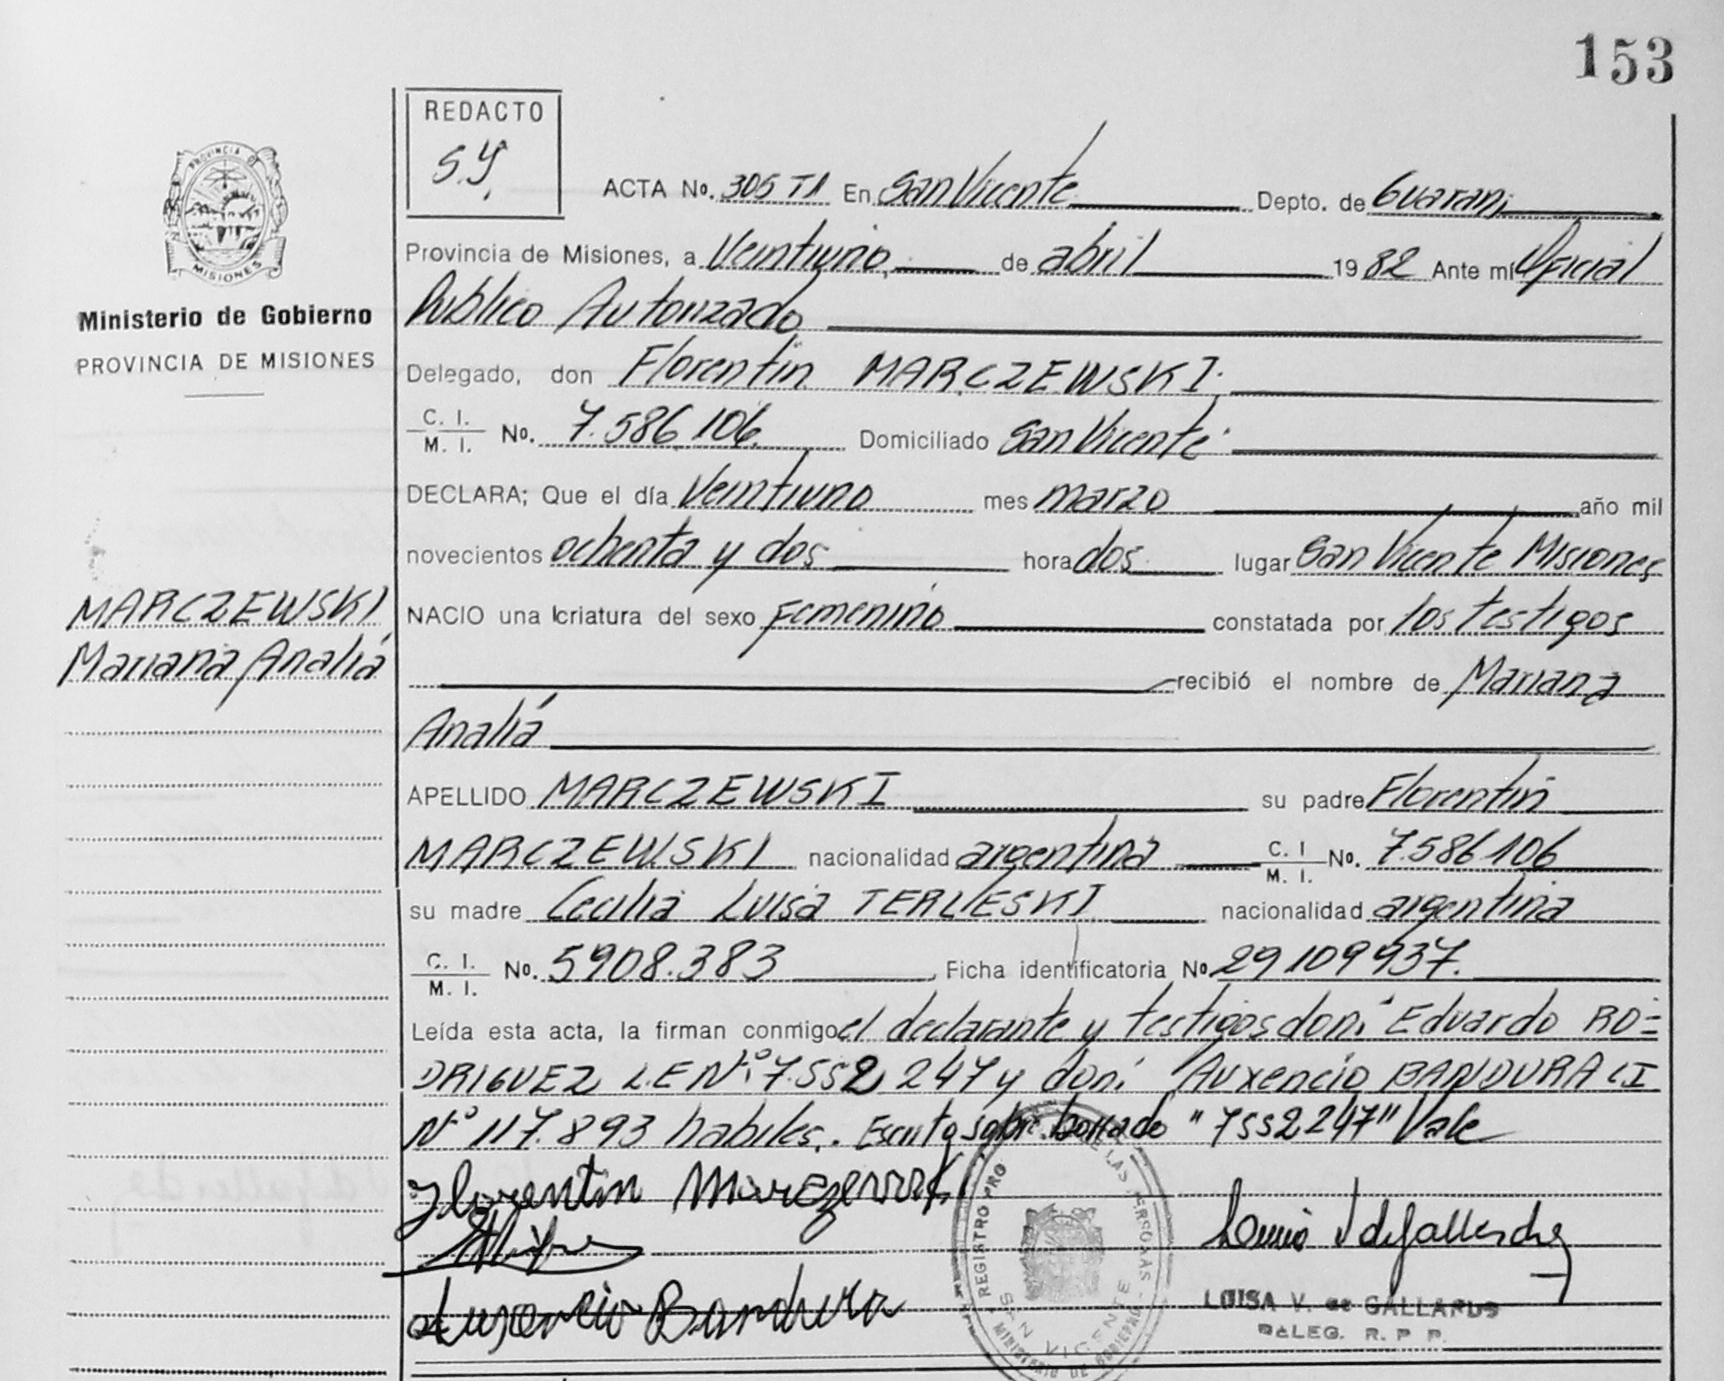 153
REDACTO
S.Y.
PROVINCIA DE
MISIONES
Ministerio de Gobierno
PROVINCIA DE MISIONES
ACTA No. 305 T1 En San Vicente Depto. de Guarani
Provincia de Misiones, a Veintiuno, de abril 1982 Ante mi Oficial
Publico Autorizado
Delegado, don Florentin MARCZEWSKI.
C. I. M. I. No. 7.586.106. Domiciliado San Vicente
DECLARA; Que el día Veintiuno mes marzo año mil
novecientos ochenta y dos hora dos lugar San Vicente Misiones
MARCZEWSKI
Mariana Analiá
NACIO una criatura del sexo femenino constatada por los testigos
recibió el nombre de Mariana
Analiá
APELLIDO MARCZEWSKI su padre Florentin
MARCZEWSKI nacionalidad argentina C. I M. I. No. 7.586.106
su madre Cecilia Luisa TERLIESKI nacionalidad argentina
C. I. M. I. No. 5908.383 Ficha identificatoria No 29109937.
Leída esta acta, la firman conmigo el declarante y testigos don: Eduardo RO=
DRIGUEZ L.E Nº: 7.552 247 y don: Auxencio BANDURA CI
Nº 117.893 habiles. Escrito sobre borrado "7552247" Vale
Florentin Marczewski
Auxencio Bandura
REGISTRO PRO DE LAS PERSONAS
SAN VICENTE
MINISTERIO DE GOBIERNO
LUISA V. de GALLARDO
DELEG. R. P. P.